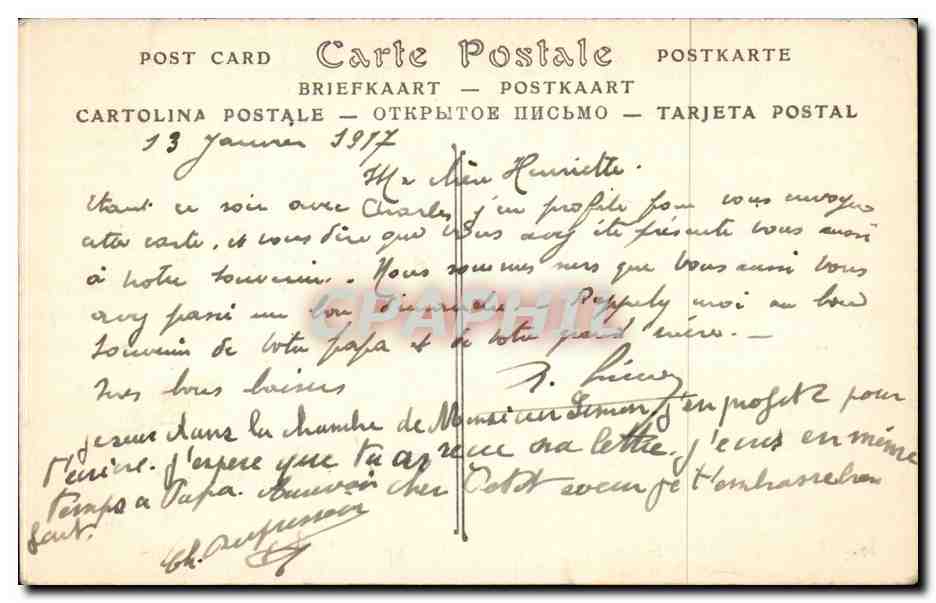 POST CARD Carte Postale POSTKARTE
BRIEFKAART — POSTKAART
CARTOLINA POSTALE — ОТКРЫТОЕ ПИСЬМО — TARJETA POSTAL
13 Janvier 1917
Ma chère Henriette.
Etant ce soir avec Charles j'en profite pour vous envoyer
cette carte, et vous dire que vous avez été présente vous aussi
à notre souvenir. Nous sommes sûrs que vous aussi vous
avez passé un bon dimanche. Rappelez moi au bon
souvenir de votre papa et de votre grand mère. —
Mes bons baisers
CPAPHIL
Je suis dans la chambre de Monsieur Simon, j'en profite pour
t'écrire. J'espere que tu as recue ma lettre. j'écris en même
temps a Papa. Aurevoir cher Petit soeur je t'embrasse bien
fort.
Ch.